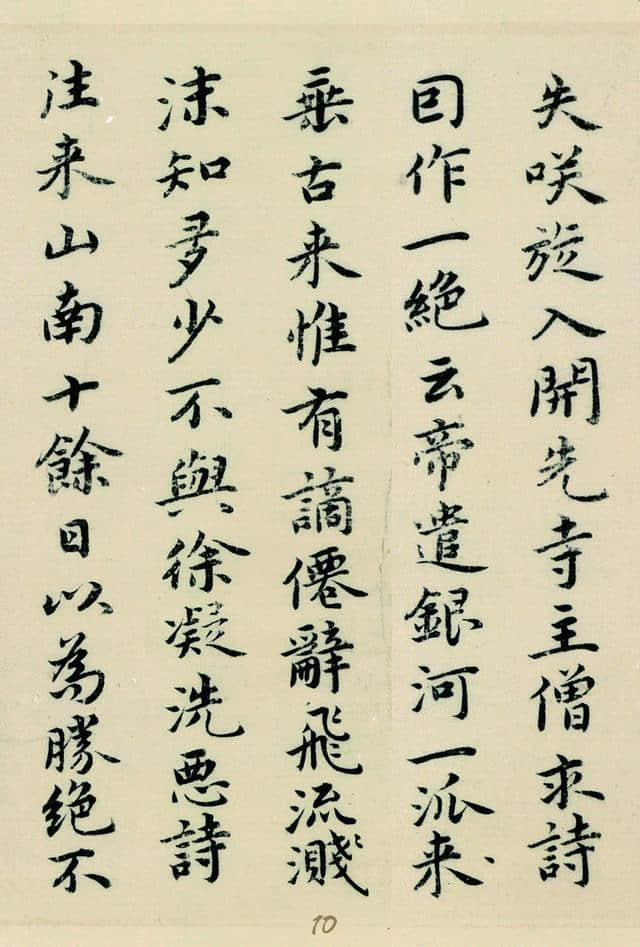 失咲旋入開先寺主僧求詩
囙作一絶云帝遣銀河一派来
垂古来惟有謫僊辭飛流濺
沫知多少不與徐凝洗悪詩
往来山南十餘日以為勝絶不
10